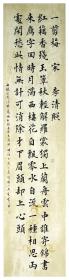 一剪梅 宋 李清照
紅藕香殘玉簟秋輕解羅裳獨上蘭舟雲中誰寄錦書
來雁字回時月滿西樓花自飄零水自流一種相思兩
處閒愁此情無計可消除才下眉頭却上心頭